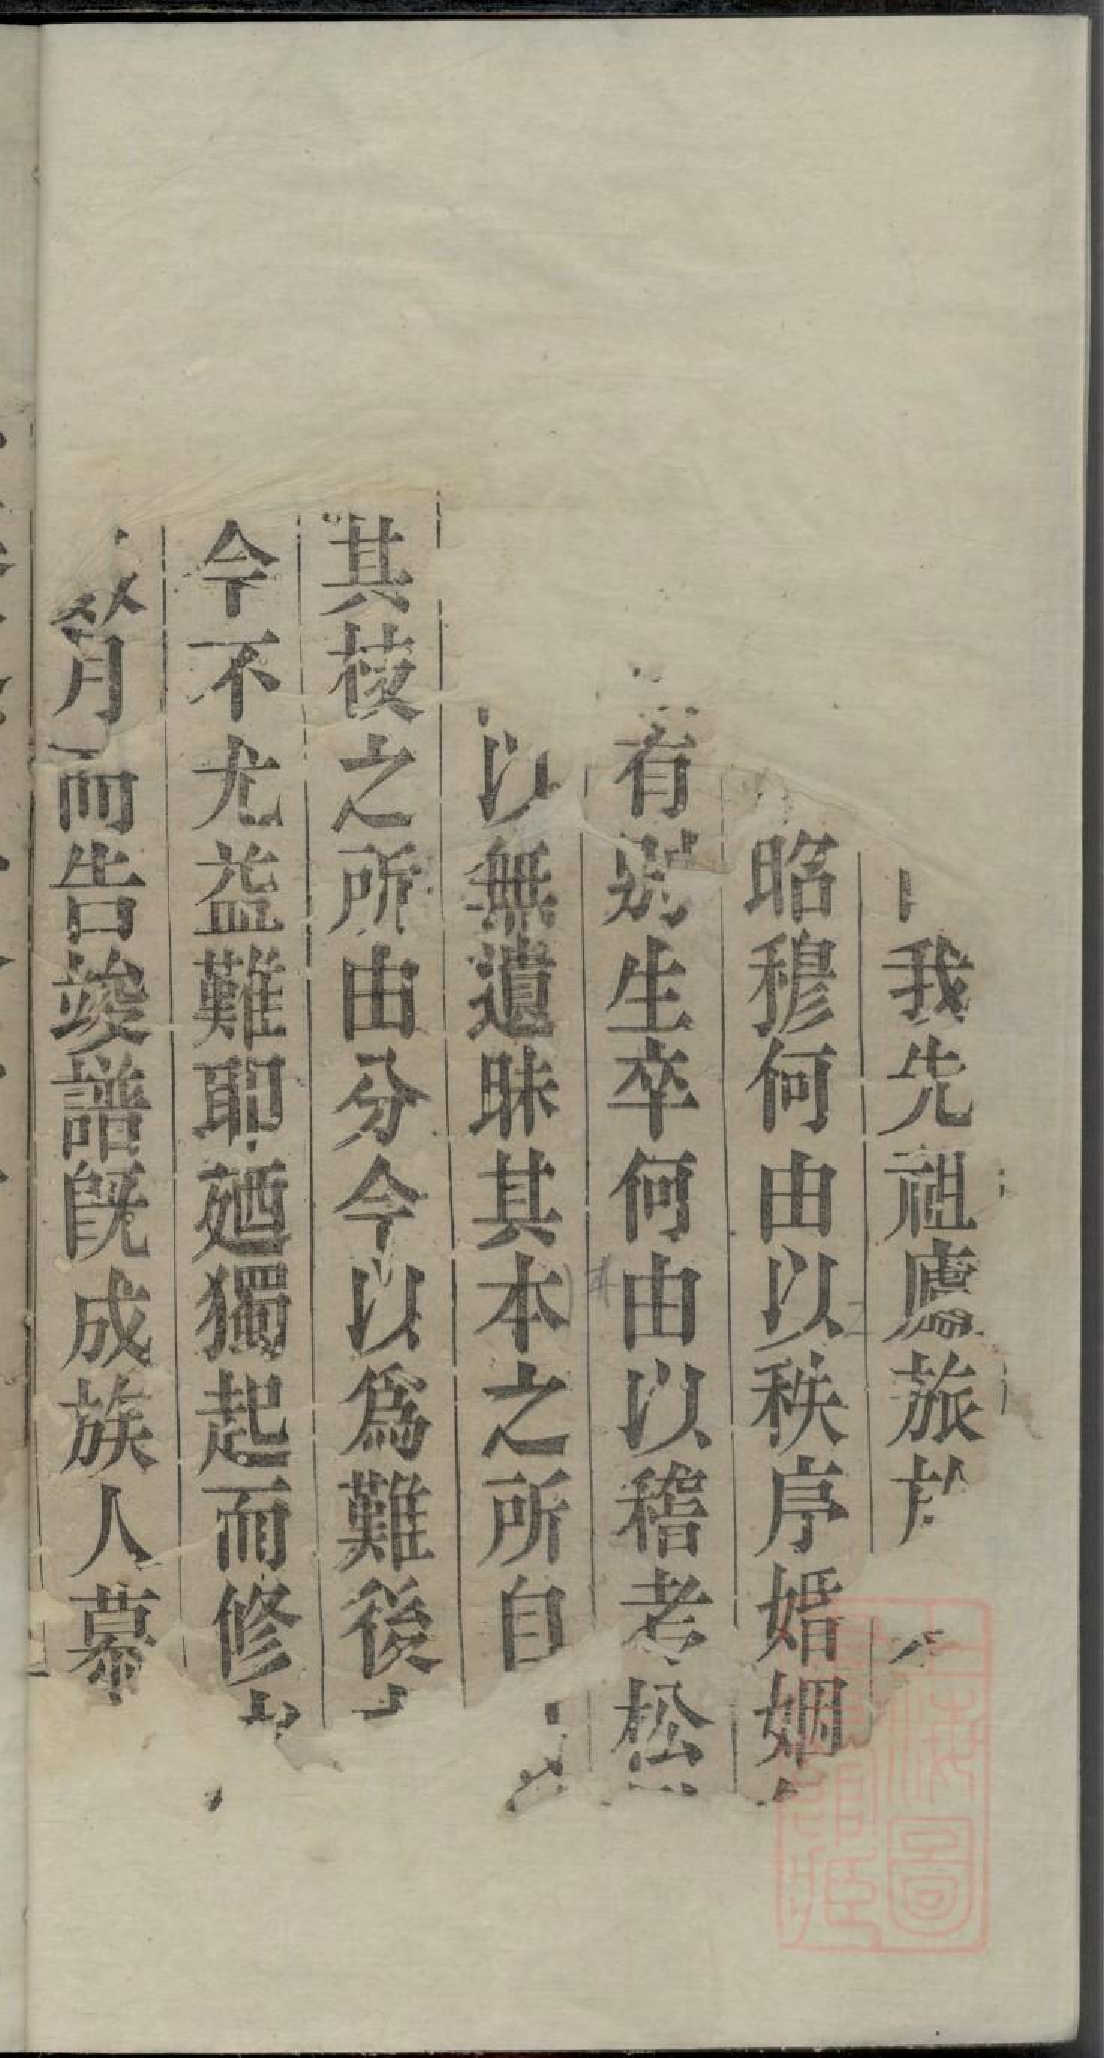 我先祖廬旅於
昭穆何由以秩序婚姻
有別生卒何由以稽考松
以無遺昧其本之所自
其核之所由分今以為難後
今不尤益難耶廼獨起而修
月而告竣譜既成族人慕
上海圖書館藏